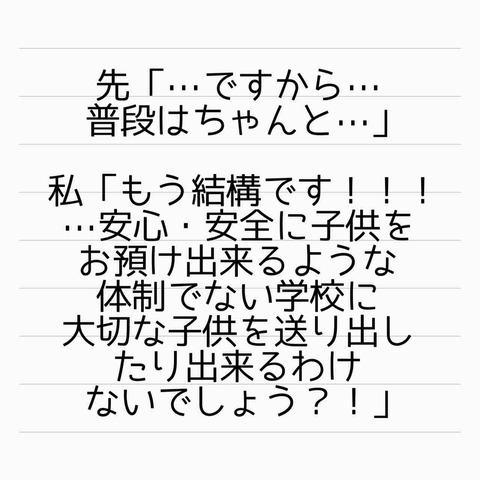 先「…ですから…
普段はちゃんと…」
私「もう結構です！！！
…安心・安全に子供を
お預け出来るような
体制でない学校に
大切な子供を送り出し
たり出来るわけ
ないでしょう？！」